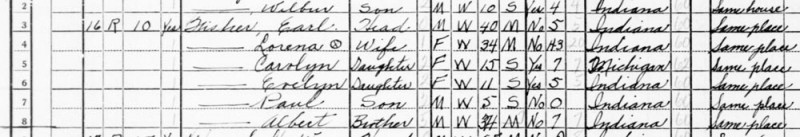 2 Wilbur Son M W 10 S Yes 4 Indiana Same house
3 16 R 10 Yes Fisher Earl Head M W 40 M No 5 Indiana Same place
4 — Lorena Wife F W 34 M No H3 Indiana Same place
5 — Carolyn Daughter F W 15 S Yes 7 Michigan Same place
6 — Evelyn Daughter F W 11 S Yes 5 Indiana Same place
7 — Paul Son M W 5 S No 0 Indiana Same place
8 — Albert Brother M W 34 M No 7 Indiana Same place